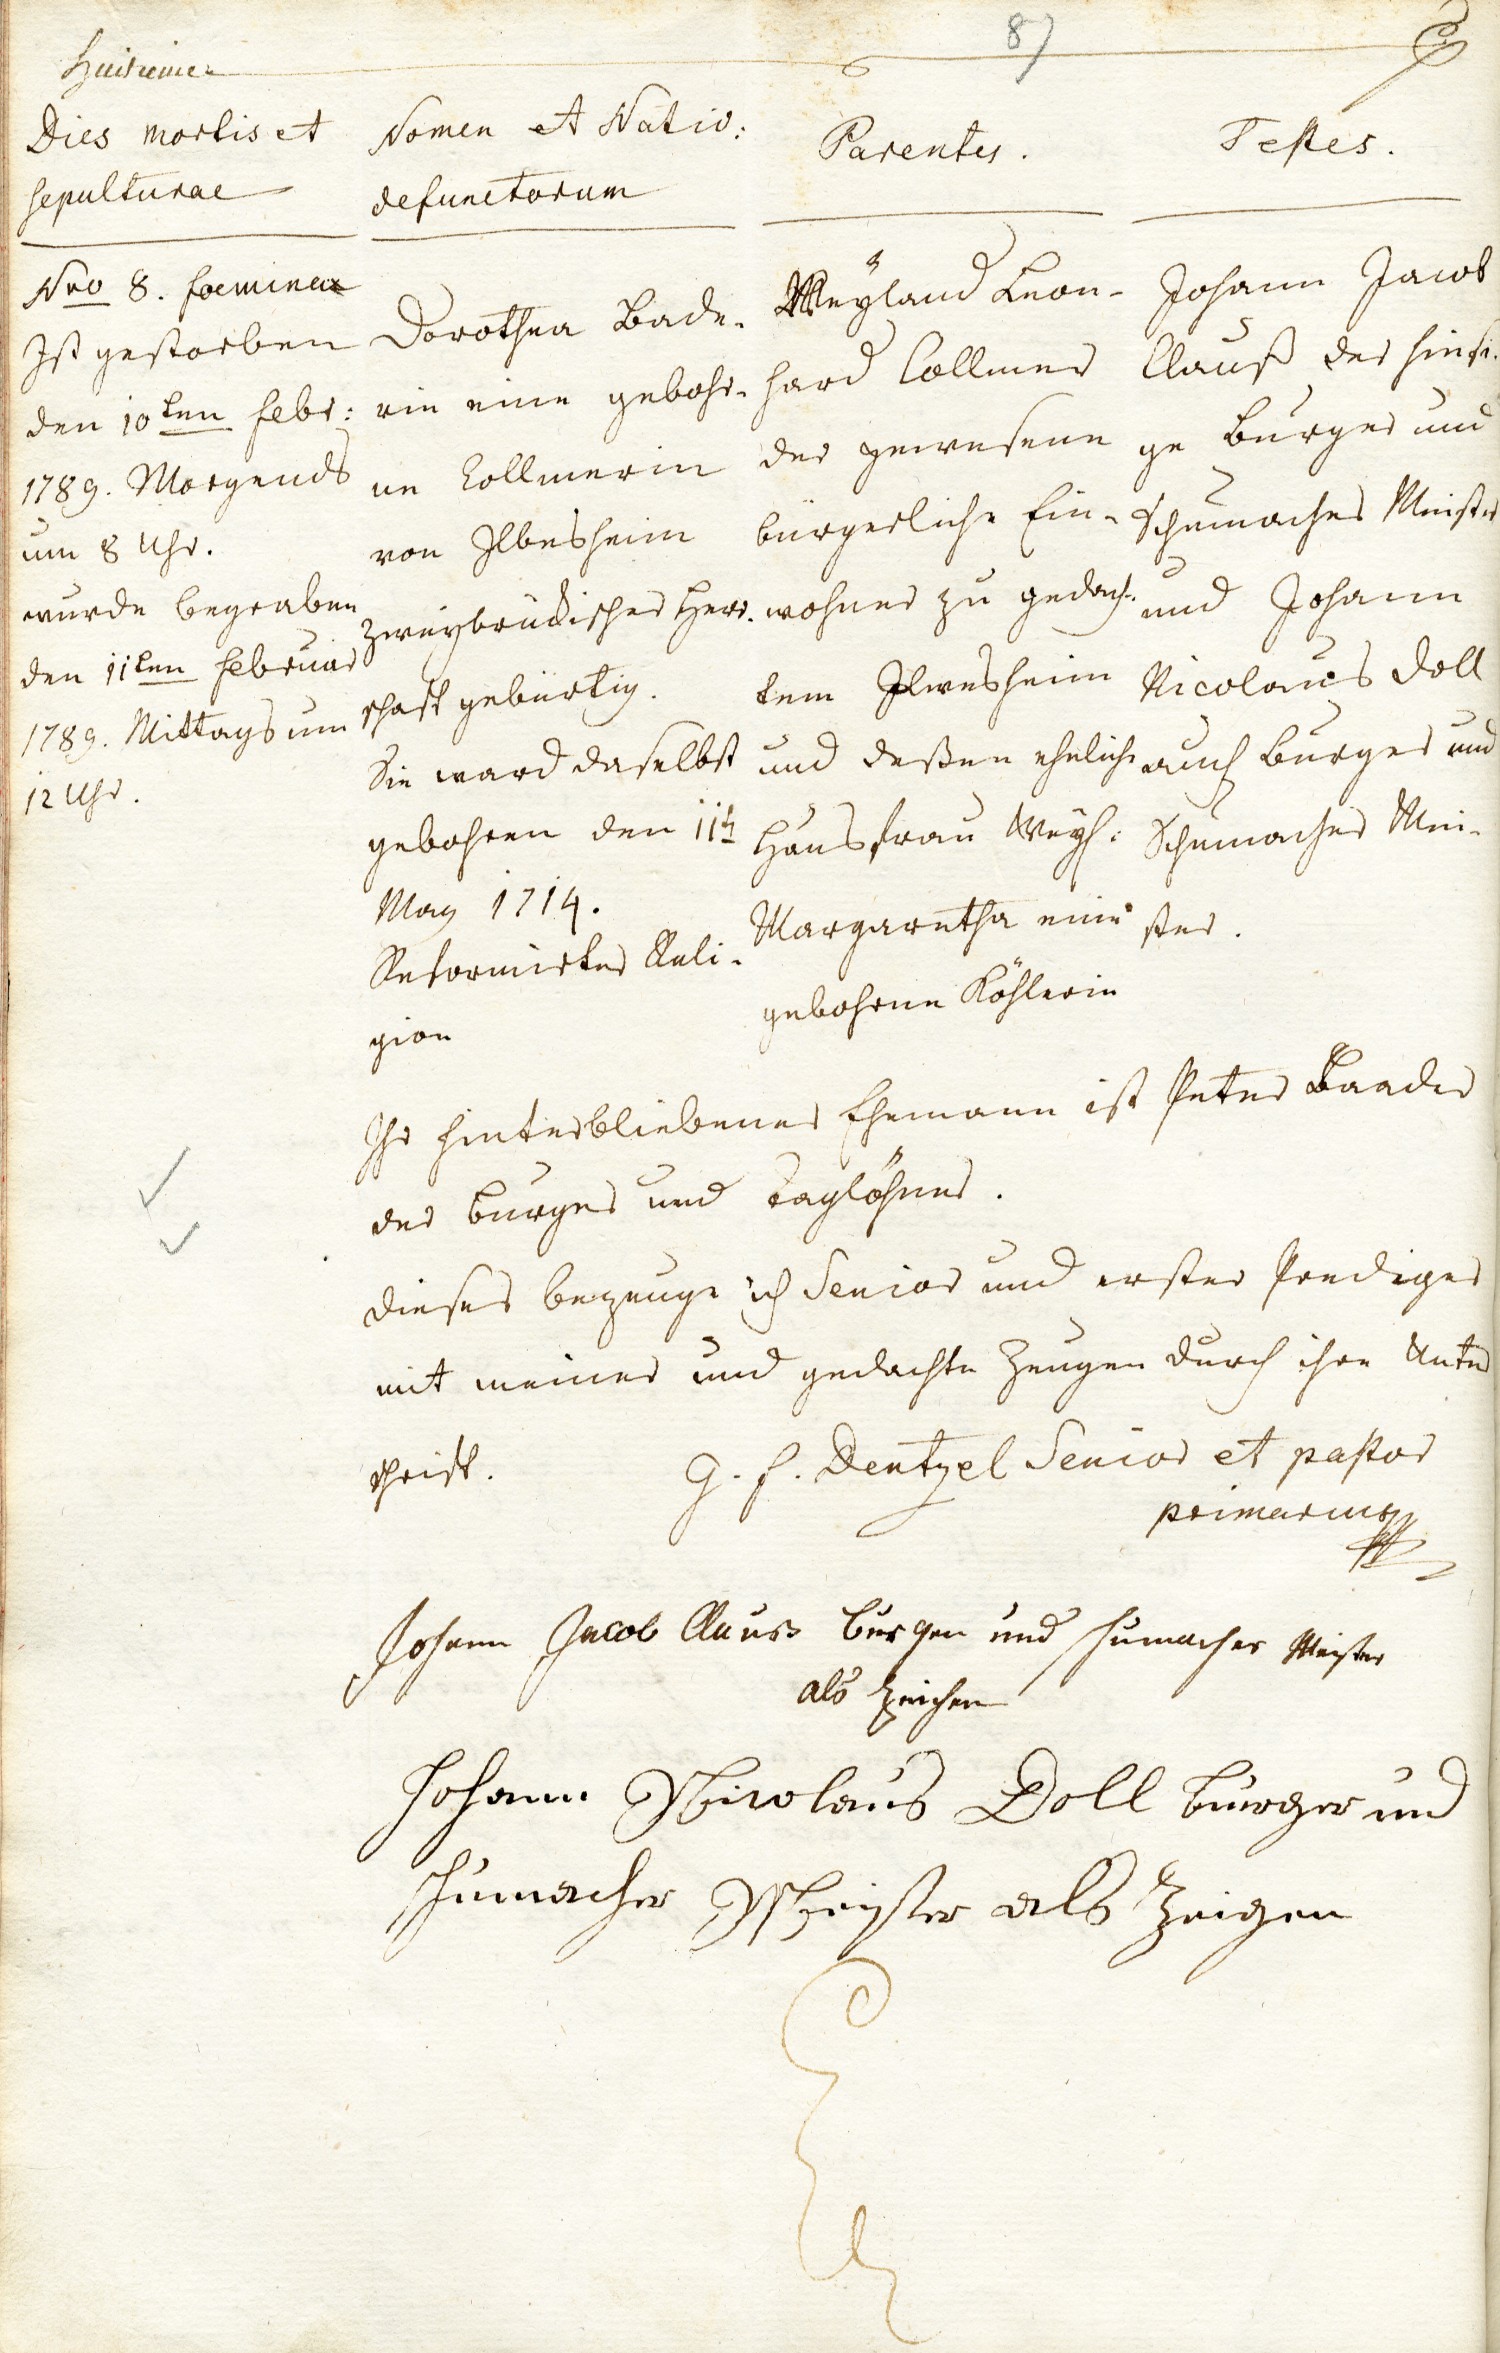 8)
Dies mortis et
sepulturae
Nomen et Nativ:
defunctorum
Parentes.
Testes.
Nro 8. foeminea
Ist gestorben
den 10ten Febr:
1789. Morgends
um 8 Uhr.
wurde begraben
den 11ten Februar
1789. Mittags um
12 Uhr.
Dorothea Bade-
rin eine gebohr-
ne Collmerin
von Ilbesheim
Zweybrückischer Herr-
schaft gebürtig.
Sie ward daselbst
gebohren den 11t
May 1714.
Reformirter Reli-
gion
Weyland Leon-
hard Collmer
der gewesene
bürgerliche Ein-
wohner zu gedach-
tem Ilwesheim
und deßen ehelich
Haus frau Weyl:
Margaretha eine
gebohrne Köhlerin
Johann Jacob
Clauß der hiesi-
ge Burger und
Schumacher Meister
und Johann
Nicolaus Doll
auch Burger und
Schumacher Mei-
ster.
Ihr hinterbliebener Ehemann ist Peter Baader
der Burger und Taglöhner.
Dieses bezeuge ich Senior und erster Prediger
mit meiner und gedachte Zeugen durch ihre Unter
schrift.
G. F. Dentzel Senior et pastor
primarius
Johann Jacob Clauss burger und schumacher Meister
als Zeichen
Johann Nicolaus Doll burger und
schumacher Meister als Zeigen